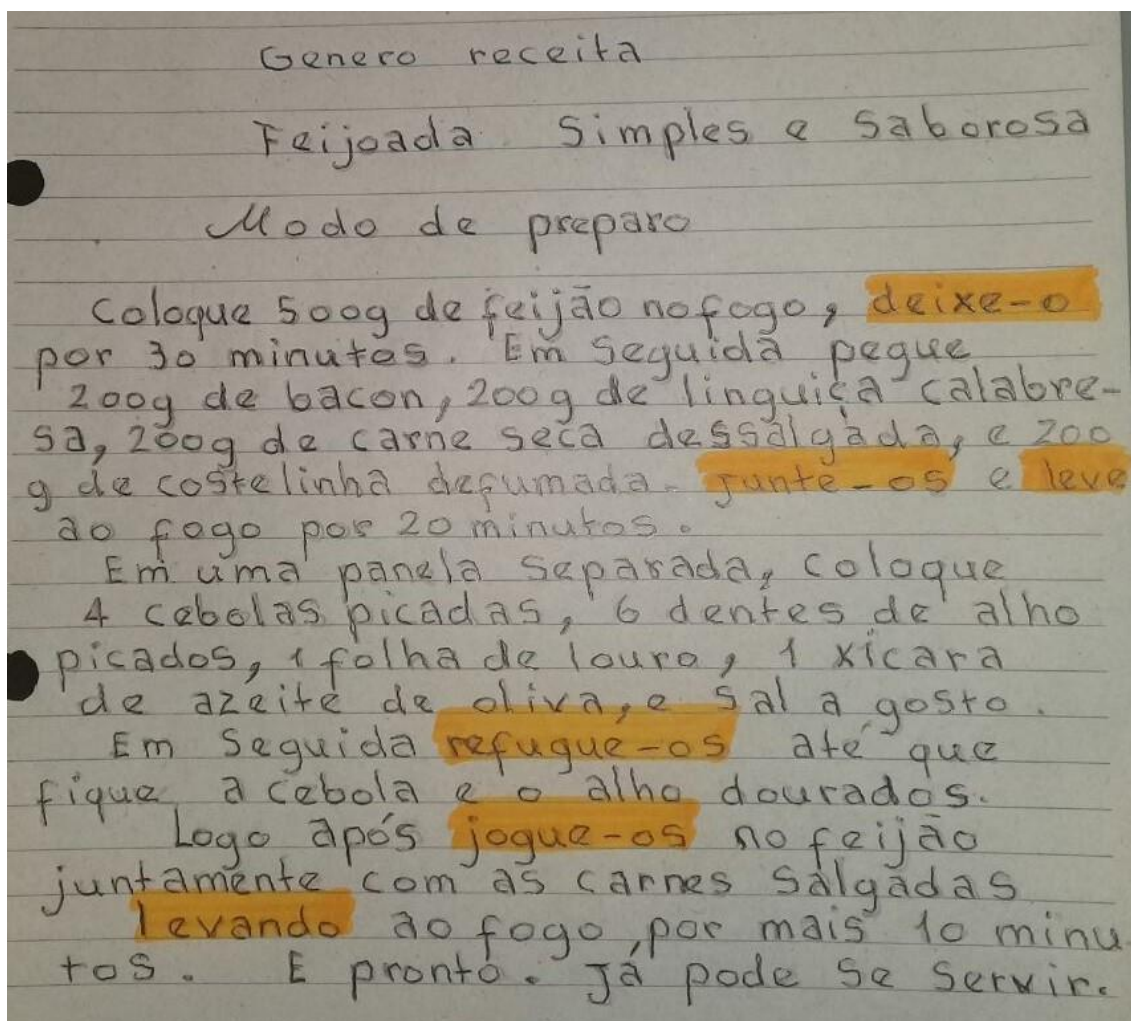 Genero receita
Feijoada Simples e Saborosa
Modo de preparo
Coloque 500g de feijão no fogo, deixe-o
por 30 minutos. Em Seguida pegue
200g de bacon, 200g de linguiça calabre-
sa, 200g de carne seca dessalgada, e 200
g de costelinha defumada. Junte-os e leve
ao fogo por 20 minutos.
Em uma panela Separada, coloque
4 cebolas picadas, 6 dentes de alho
picados, 1 folha de louro, 1 xícara
de azeite de oliva, e Sal a gosto.
Em Seguida refugue-os até que
fique a cebola e o alho dourados.
Logo após jogue-os no feijão
juntamente com as carnes Salgadas
levando ao fogo, por mais 10 minu
tos. E pronto. Já pode Se Servir.